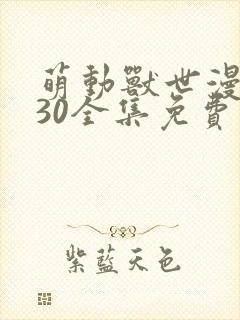 萌動獸世漫
30全集免費
紫藍天色